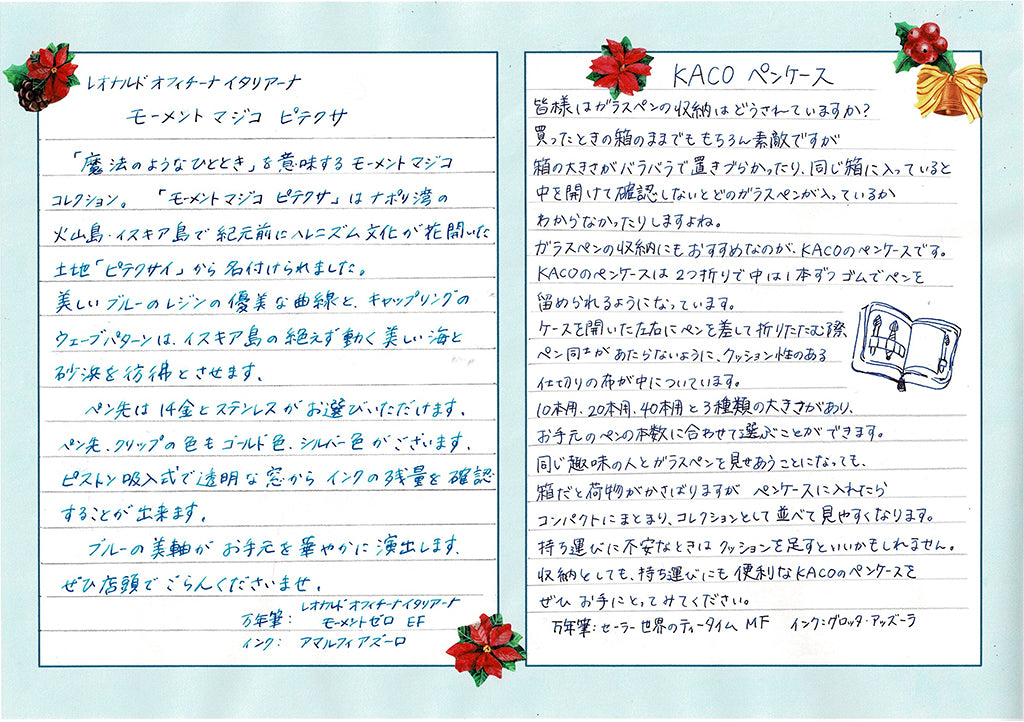 レオナルド オフィチーナ イタリアーナ
モーメント マジコ ピテクサ
「魔法のようなひととき」を意味する モーメントマジコ
コレクション。 「モーメントマジコ ピテクサ」は ナポリ湾の
火山島・イスキア島で 紀元前にヘレニズム文化が花開いた
土地「ピテクサイ」から 名付けられました。
美しいブルーのレジンの優美な曲線と、キャップリングの
ウェーブパターンは、イスキア島の絶えず動く美しい海と
砂浜を彷彿とさせます。
ペン先は 14金とステンレスがお選びいただけます。
ペン先、クリップの色も ゴールド色、シルバー色がございます。
ピストン吸入式で透明な窓から インクの残量を確認
することが出来ます。
ブルーの美軸が お手元を華やかに演出します。
ぜひ店頭で ごらんくださいませ。
万年筆: レオナルド オフィチーナイタリアーナ
モーメントゼロ EF
インク: アマルフィアズーロ
KACO ペンケース
皆様はガラスペンの収納はどうされていますか?
買ったときの箱のままでももちろん素敵ですが
箱の大きさがバラバラで置きづらかったり、同じ箱に入っていると
中を開けて確認しないとどのガラスペンが入っているか
わからなかったりしますよね。
ガラスペンの収納にもおすすめなのが、KACOのペンケースです。
KACOのペンケースは2つ折りで中は1本ずつゴムでペンを
留められるようになっています。
ケースを開いた左右にペンを差して折りたたむ際
ペン同士があたらないように、クッション性のある
仕切りの布が中についています。
10本用、20本用、40本用と3種類の大きさがあり、
お手元のペンの本数に合わせて選ぶことができます。
同じ趣味の人とガラスペンを見せあうことになっても、
箱だと荷物がかさばりますが ペンケースに入れたら
コンパクトにまとまり、コレクションとして並べて見やすくなります。
持ち運びに不安なときはクッションを足すといいかもしれません。
収納としても、持ち運びにも便利なKACOのペンケースを
ぜひ お手にとってみてください。
万年筆:セーラー世界のティータイム MF インク:グロッタ・アッズーラ